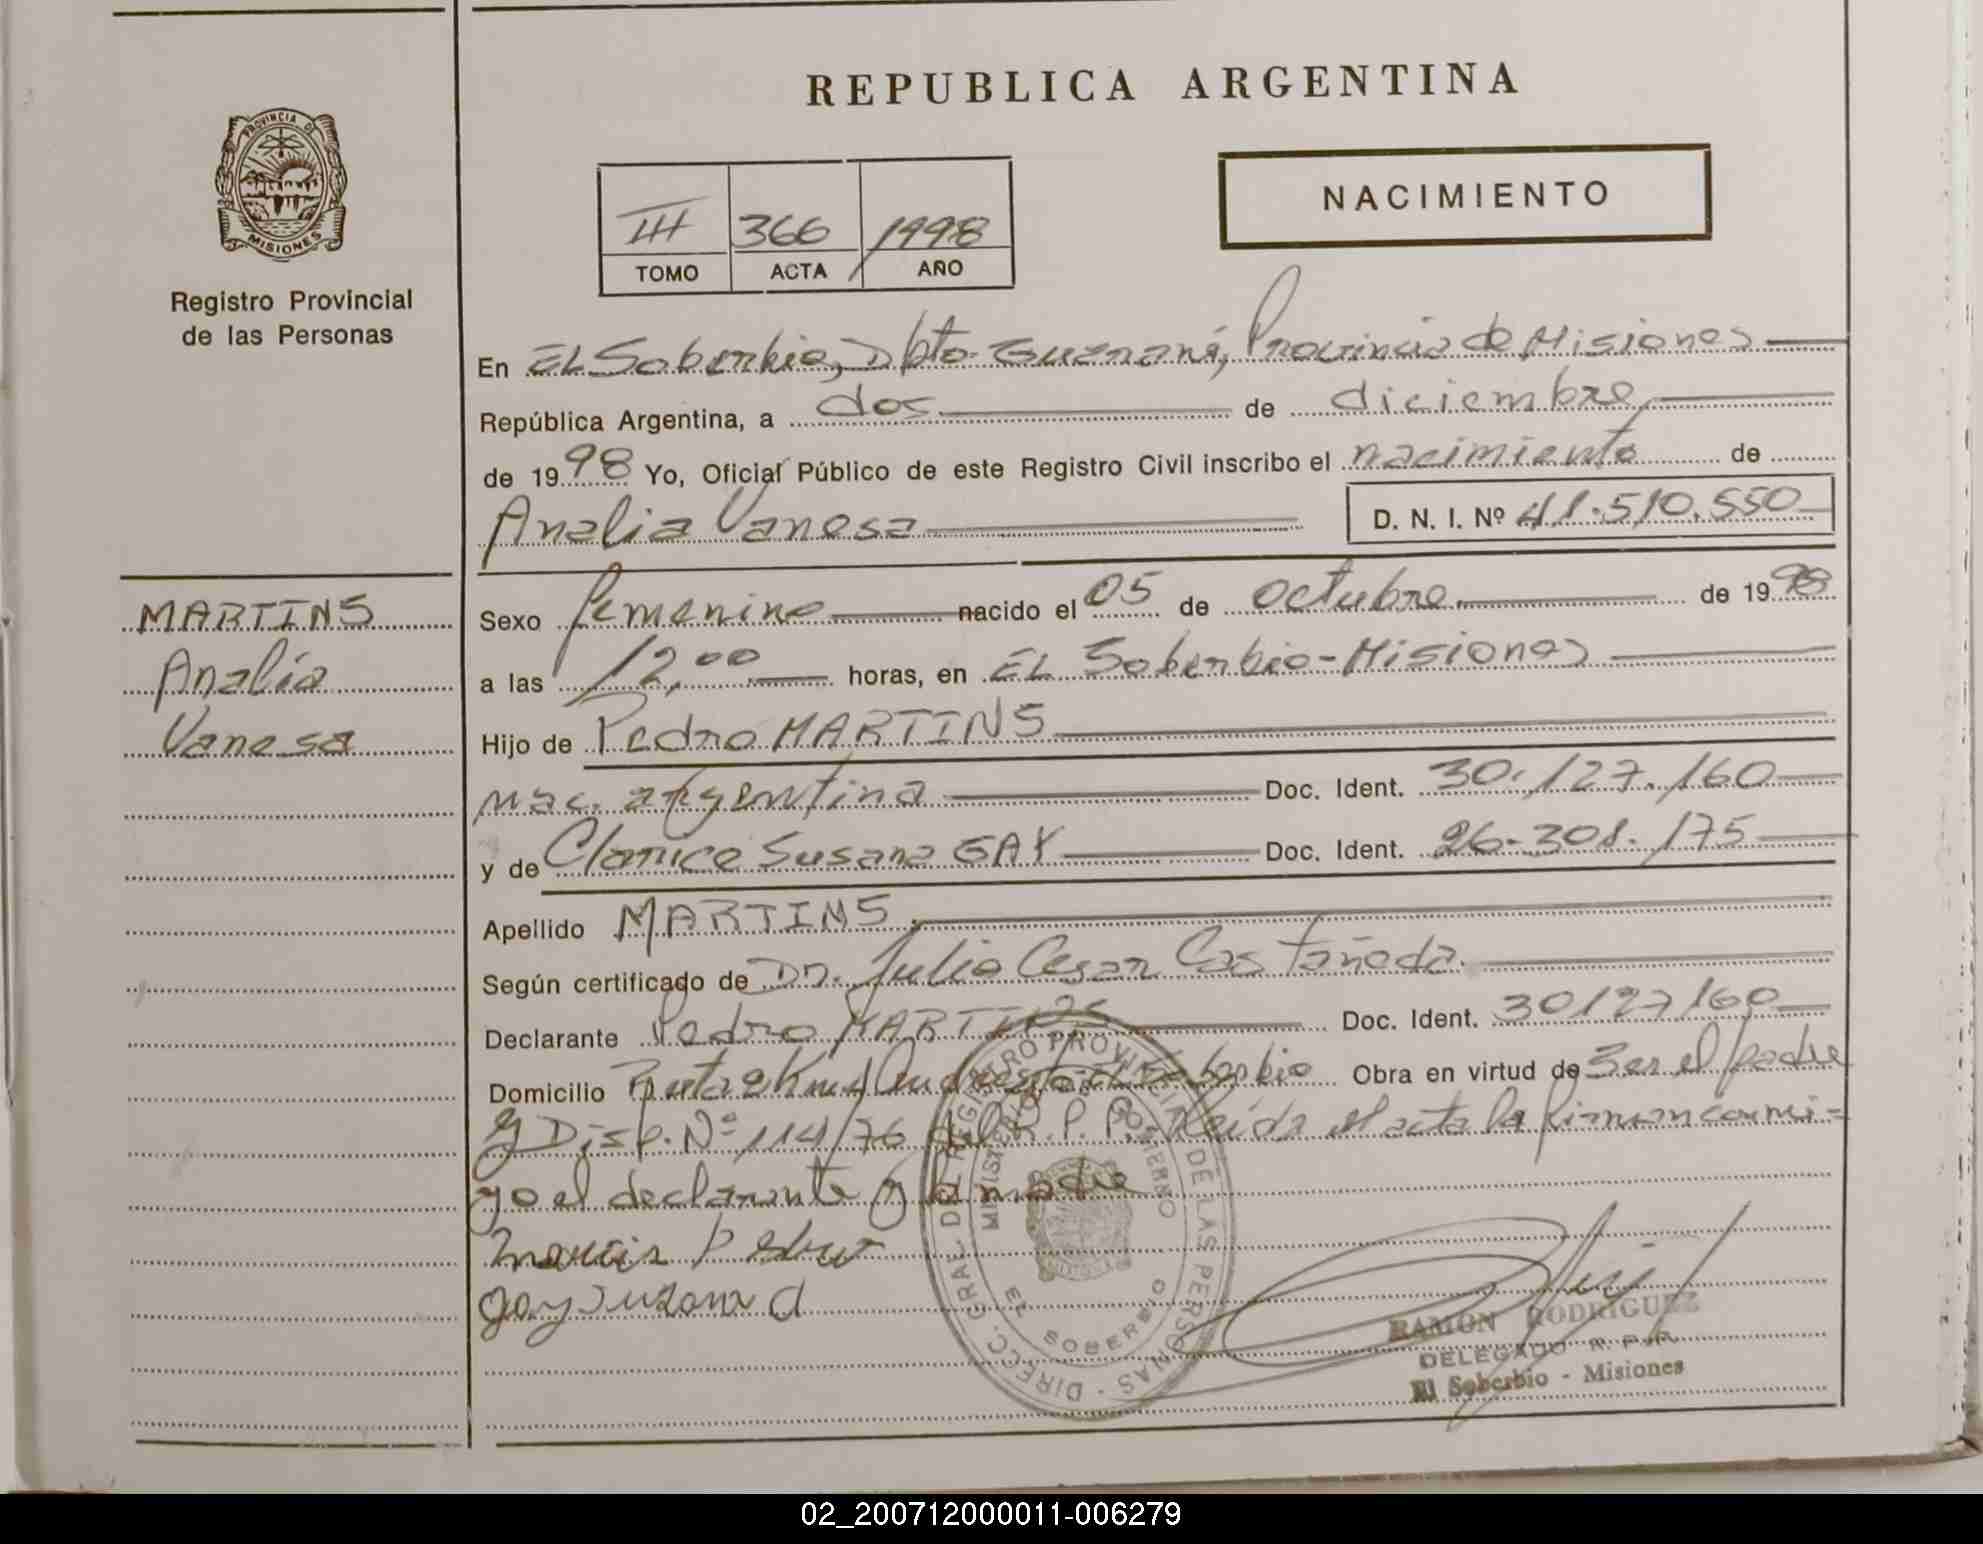 REPUBLICA ARGENTINA
PROVINCIA DE
MISIONES
Registro Provincial
de las Personas
III 366 1998
TOMO ACTA AÑO
NACIMIENTO
En El Soberbio, Dpto. Guaraní, Provincia de Misiones
República Argentina, a dos de diciembre
de 1998 Yo, Oficial Público de este Registro Civil inscribo el nacimiento de
Analia Vanesa D. N. I. Nº 41.510.550
MARTINS
Analía
Vanesa
Sexo femenino nacido el 05 de octubre de 1998
a las 12,00 horas, en El Soberbio-Misiones
Hijo de Pedro MARTINS
nac. argentina Doc. Ident. 30.127.160
y de Clarice Susana GAY Doc. Ident. 26.308.175
Apellido MARTINS
Según certificado de Dr. Julio Cesar Castañeda
Declarante Pedro MARTINS Doc. Ident. 30127160
Domicilio Ruta 2 Km Soberbio Obra en virtud de ser el padre
y Disp. Nº 114/76 del R.P.P. Leída el acta la firman conmi-
go el declarante y la madre
Pedro
Gay Suzana C
DIRECC. GRAL. DEL REGISTRO PROVINCIAL DE LAS PERSONAS
MINISTERIO DE GOBIERNO
EL SOBERBIO
RAMON RODRIGUEZ
DELEGADO R.P.P.
El Soberbio - Misiones
02_200712000011-006279